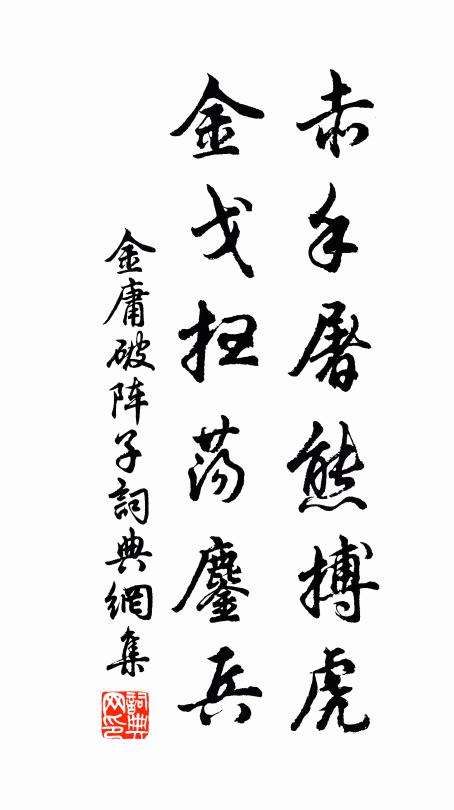 赤手屠熊搏虎
金戈扫荡鏖兵
金庸破阵子詞典網集
詞典網印